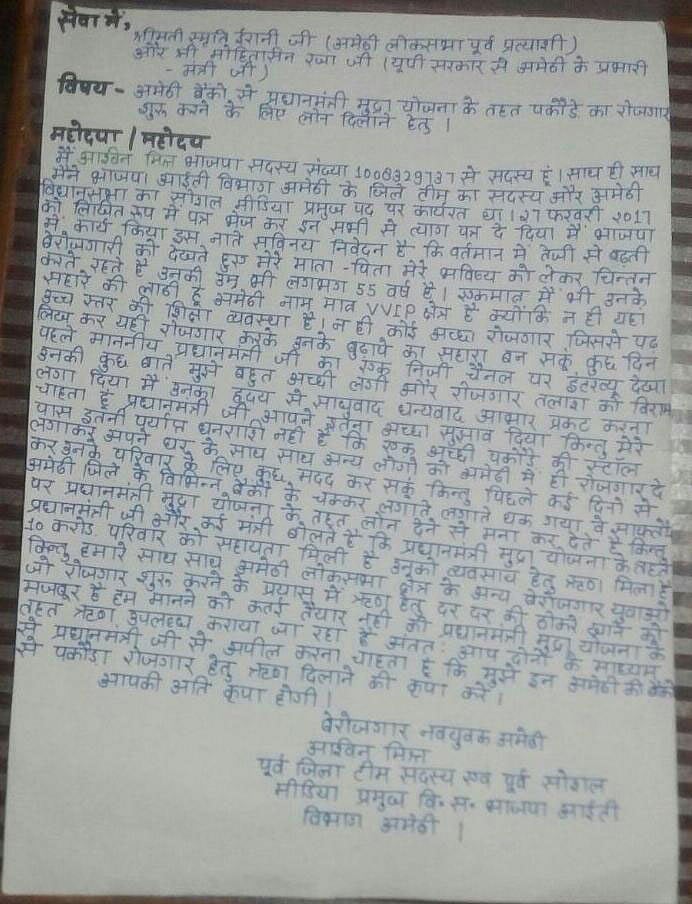 सेवा में,
श्रीमती स्मृति ईरानी जी (अमेठी लोकसभा पूर्व प्रत्याशी)
और श्री मोहसिन रजा जी (यूपी सरकार से अमेठी के प्रभारी
- मंत्री जी)
विषय - अमेठी बैंको से प्रधानमंत्री मुद्रा योजना के तहत पकौडे का रोजगार
शुरू करने के लिए लोन दिलाने हेतु ।
महोदया / महोदय
मैं भाजपा सदस्य संख्या से सदस्य हूं । साथ ही साथ
मैने भाजपा आईटी विभाग अमेठी के जिले टीम का सदस्य और अमेठी
विधानसभा का सोशल मीडिया प्रमुख पद पर कार्यरत था । 27 फरवरी 2017
को लिखित रूप में पत्र भेज कर इन सभी से त्याग पत्र दे दिया मैं भाजपा
में कार्य किया इस नाते सविनय निवेदन है कि वर्तमान में तेजी से बढ़ती
बेरोजगारी को देखते हुए मेरे माता - पिता मेरे भविष्य को लेकर चिन्तन
करते रहते हैं उनकी उम्र भी लगभग 55 वर्ष है । एकमात्र मैं भी उनके
सहारे की लाठी हूं अमेठी नाम मात्र VVIP क्षेत्र है क्योंकि न ही यहा
उच्च स्तर की शिक्षा व्यवस्था है । न ही कोई अच्छा रोजगार जिससे पढ़
लिख कर यही रोजगार करके उनके बुढ़ापे का सहारा बन सकूं कुछ दिन
पहले माननीय प्रधानमंत्री जी का एक निजी चैनल पर इंटरव्यू देखा
उनकी कुछ बाते मुझे बहुत अच्छी लगी और रोजगार तलाश को विराम
लगा दिया मैं उनका हृदय से साधुवाद धन्यवाद आभार प्रकट करना
चाहता हूं प्रधानमंत्री जी आपने इतना अच्छा सुझाव दिया किन्तु मेरे
पास इतनी पर्याप्त धनराशी नही है कि एक अच्छी पकौडे की स्टाल
लगाकर अपने घर के साथ साथ अन्य लोगो को अमेठी में ही रोजगार दे
कर उनके परिवार के लिए कुछ मदद कर सकूं किन्तु पिछले कई दिनो से
अमेठी जिले के विभिन्न बैंको के चक्कर लगाते लगाते थक गया वे
पर प्रधानमंत्री मुद्रा योजना के तहत लोन देने से मना कर देते है किन्तु
प्रधानमंत्री जी और कई मंत्री बोलते है कि प्रधानमंत्री मुद्रा योजना के तहत
10 करोड परिवार को सहायता मिली है उनको व्यवसाय हेतु ऋण मिला है
किन्तु हमारे साथ साथ अमेठी लोकसभा क्षेत्र के अन्य बेरोजगार युवाओ
जो रोजगार शुरू करने के प्रयास में ऋण हेतु दर दर की ठोकरे खाने को
मजबूर है हम मानने को कतई तैयार नही की प्रधानमंत्री मुद्रा योजना के
तहत ऋण उपलब्ध कराया जा रहा है अतत: आप दोनो के माध्यम
से प्रधानमंत्री जी से अपील करना चाहता है कि मुझे इन अमेठी की बैंको
से पकौडा रोजगार हेतु ऋण दिलाने की कृपा करे ।
आपकी अति कृपा होगी ।
बेरोजगार नवयुवक अमेठी
पूर्व जिला टीम सदस्य एवं पूर्व सोशल
मीडिया प्रमुख वि. स. भाजपा आईटी
विभाग अमेठी ।